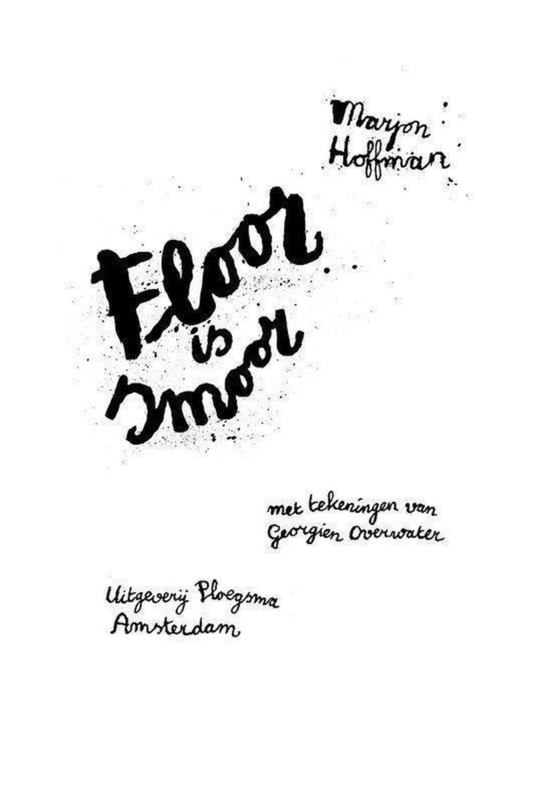 Marjon
Hoffman
Floor
is
smoor
met tekeningen van
Georgien Overwater
Uitgeverij Ploegsma
Amsterdam